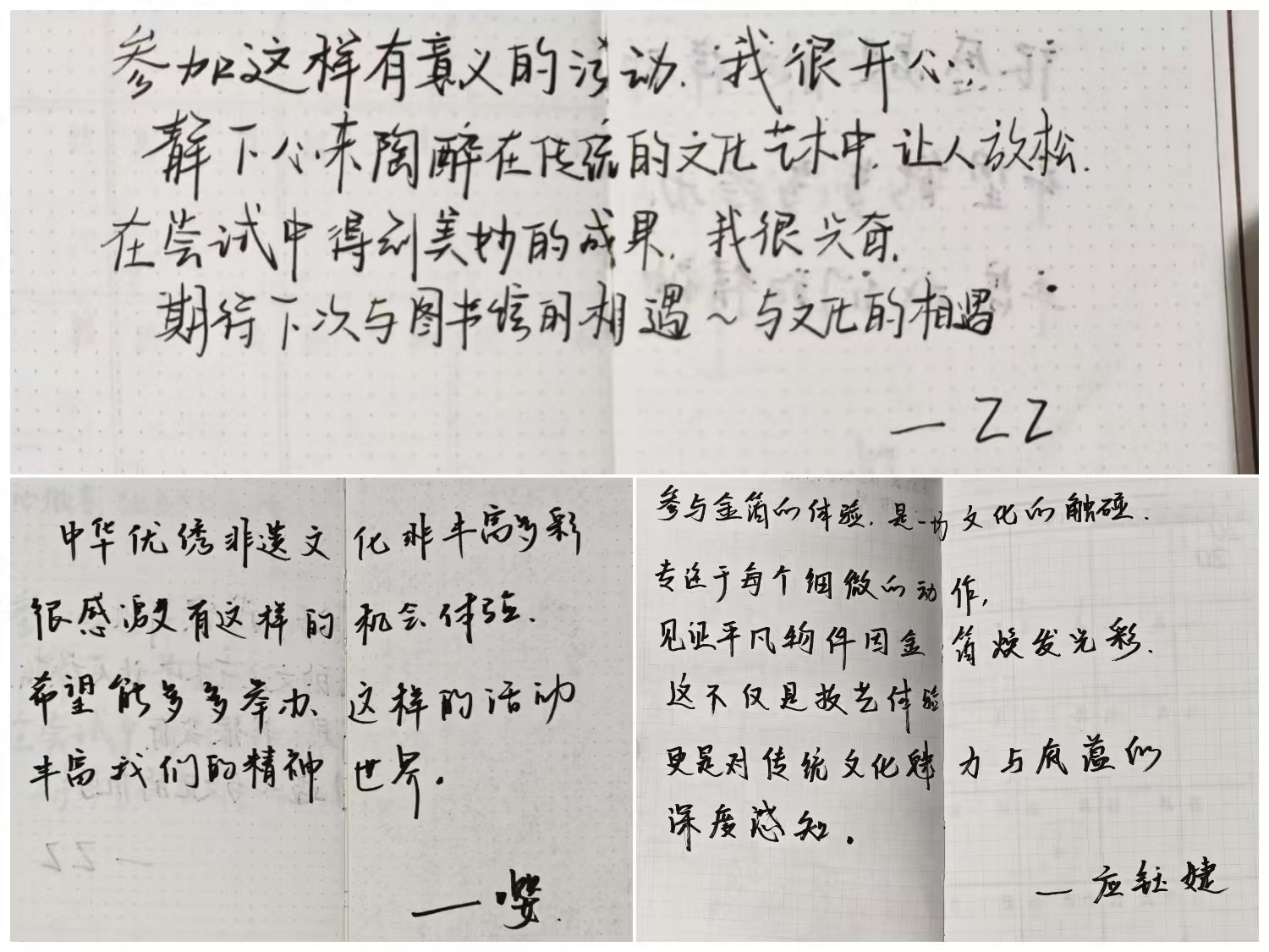 参加这样有意义的活动.我很开心
静下心来陶醉在传统的文化艺术中,让人放松.
在尝试中得到美妙的成果.我很兴奋.
期待下次与图书馆的相遇~与文化的相遇
—ZZ
中华优秀非遗文化非丰富多彩
很感激有这样的机会体验.
希望能多多举办、这样的活动
丰富我们的精神世界。
—嘤
参与金箔的体验.是一场文化的触碰.
专注于每个细微的动作,
见证平凡物件因金箔焕发光彩.
这不仅是技艺体验
更是对传统文化魅力与底蕴的
深度感知.
—应钰婕